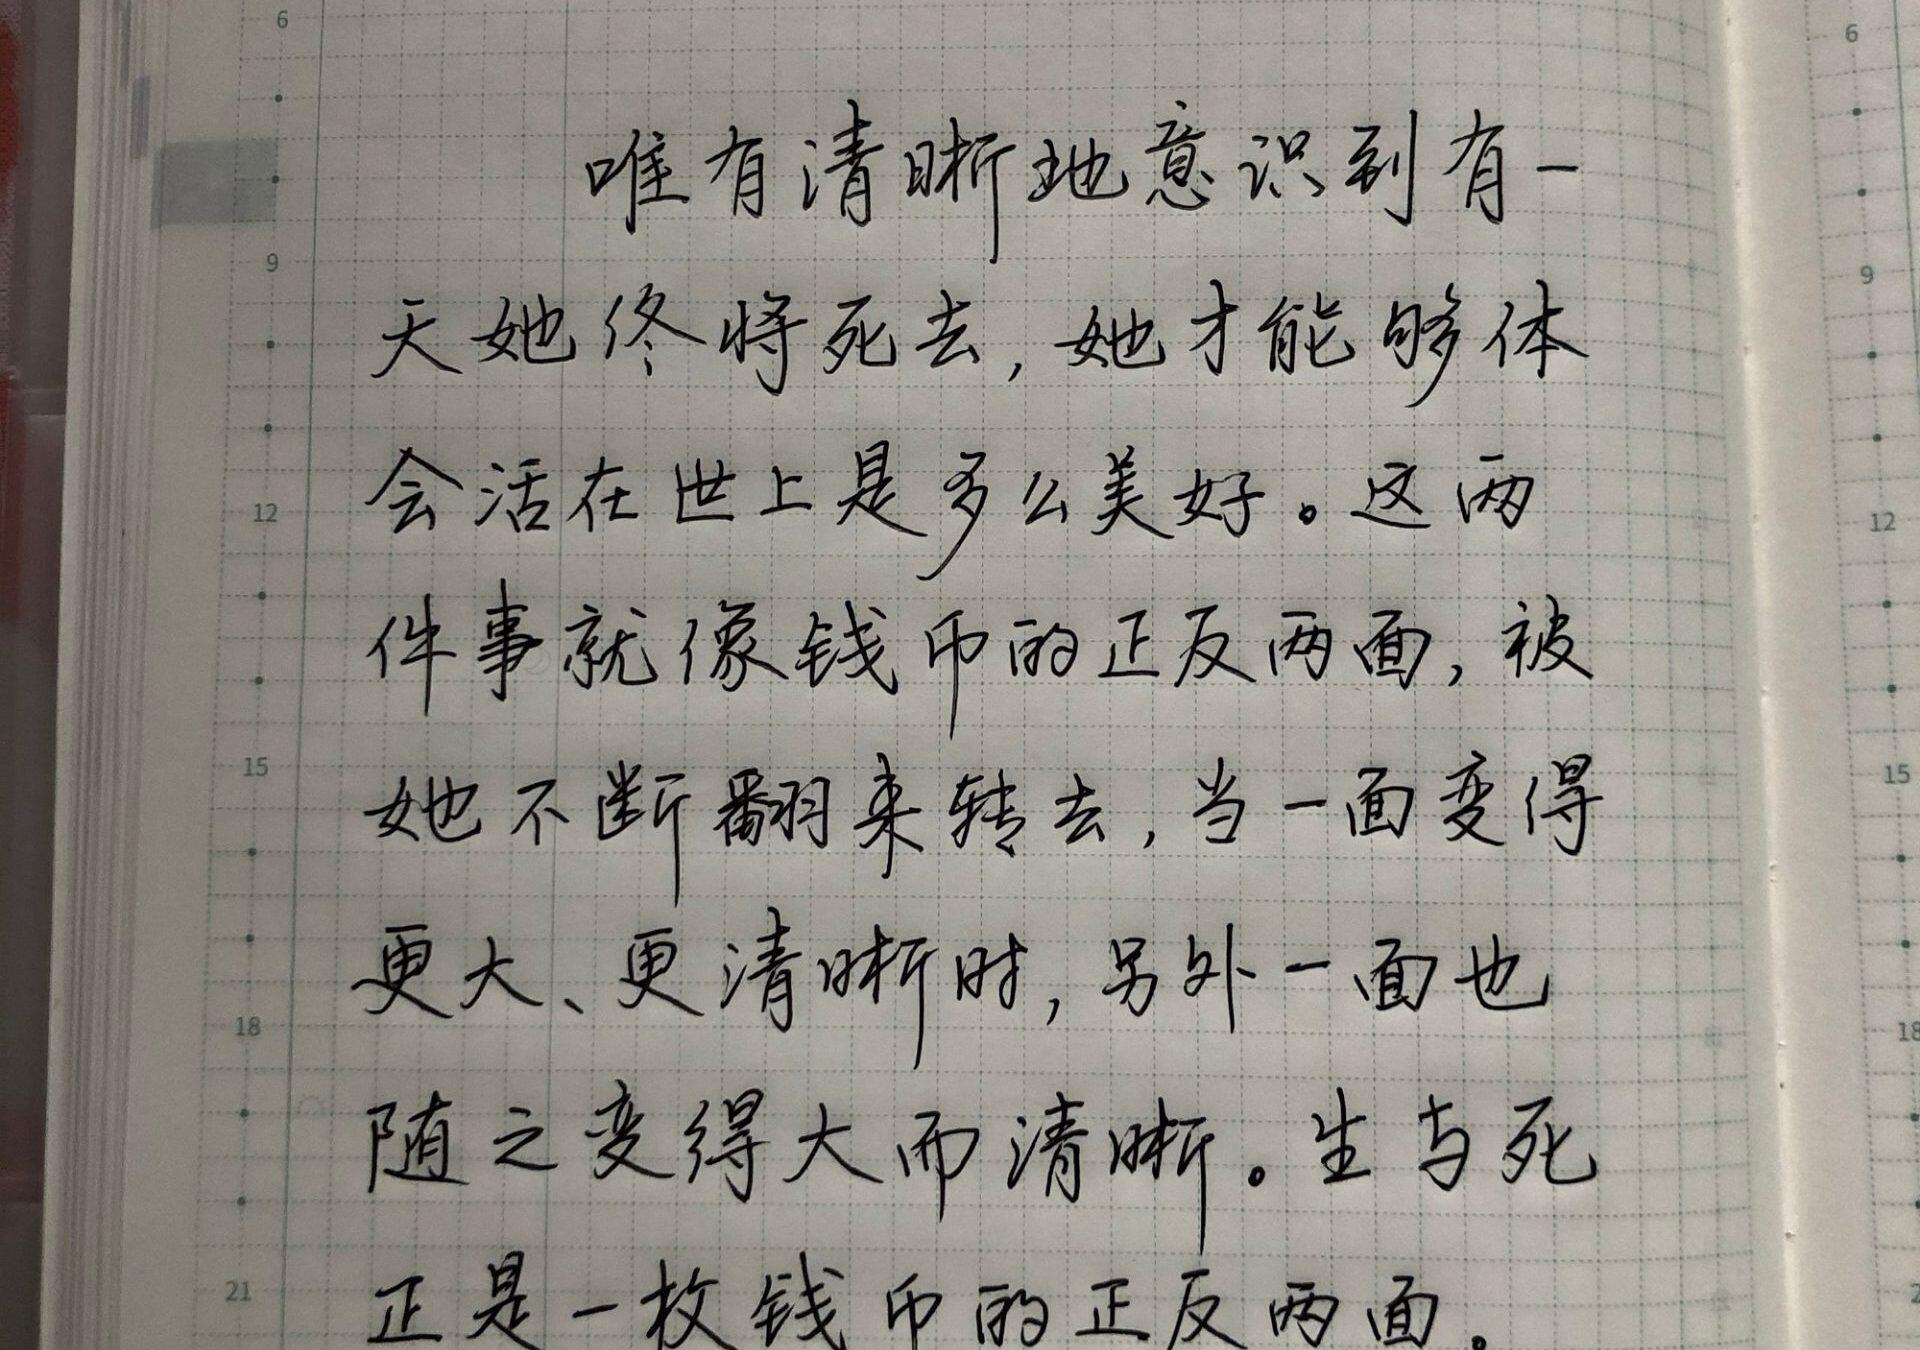 6
6
唯有清晰地意识到有一
9
9
天她终将死去，她才能够体
会活在世上是多么美好。这两
12
12
件事就像钱币的正反两面，被
15
15
她不断翻来转去，当一面变得
更大、更清晰时，另外一面也
18
18
随之变得大而清晰。生与死
21
正是一枚钱币的正反两面。